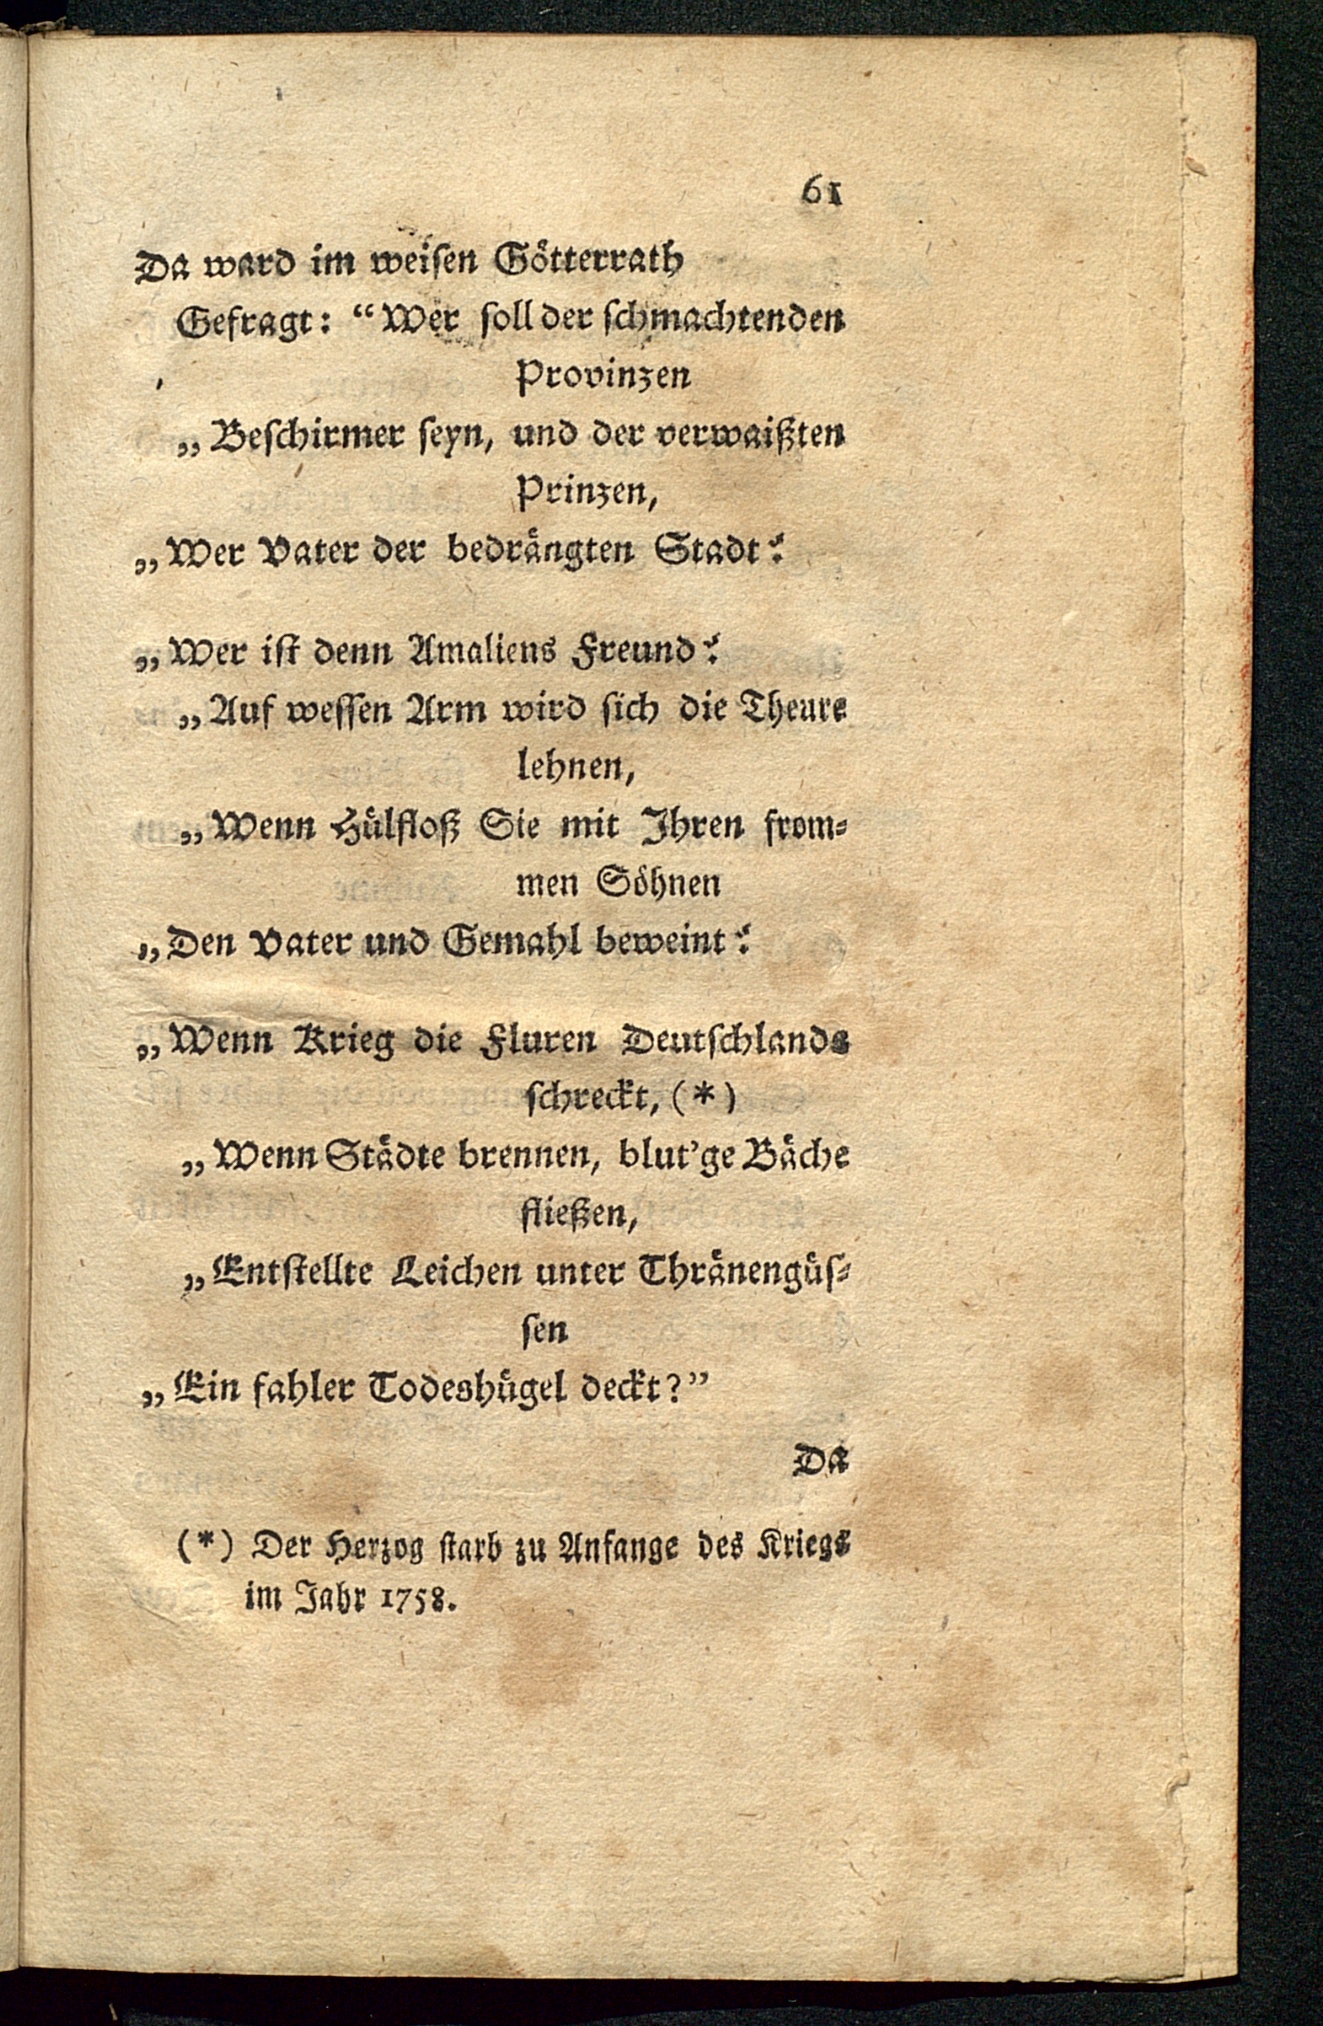 61
Da ward im weisen Götterrath
Gefragt: “Wer soll der schmachtenden
Provinzen
„Beschirmer seyn, und der verwaißten
Prinzen,
„Wer Vater der bedrängten Stadt?
„Wer ist denn Amaliens Freund?
„Auf wessen Arm wird sich die Theure
lehnen,
„Wenn Hülfloß Sie mit Ihren from-
men Söhnen
„Den Vater und Gemahl beweint?
„Wenn Krieg die Fluren Deutschlands
schreckt, (*)
„Wenn Städte brennen, blut’ge Bäche
fließen,
„Entstellte Leichen unter Thränengüs-
sen
„Ein fahler Todeshügel deckt?”
Da
(*) Der Herzog starb zu Anfange des Kriegs
im Jahr 1758.